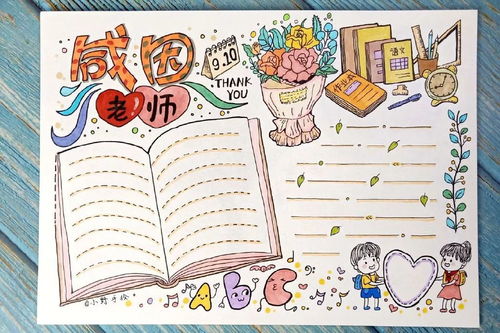 感恩
老师
9.10
THANK
YOU
语文
作业本
ABC